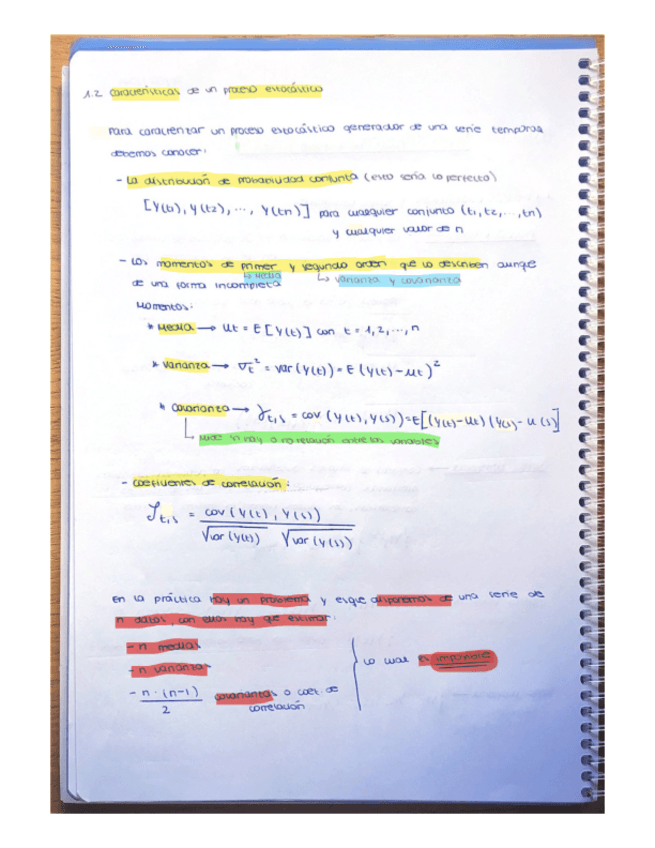 1.2 Características de un proceso estocástico
Para caracterizar un proceso estocástico generador de una serie temporal
debemos conocer:
- La distribución de probabilidad conjunta (esto sería lo perfecto)
[Y(t1), Y(t2), ..., Y(tn)] para cualquier conjunto (t1, t2, ..., tn)
y cualquier valor de n
- Los momentos de primer y segundo orden que lo describen aunque
↳ Media ↳ varianza y covarianza
de una forma incompleta
Momentos:
* Media → ut = E[Y(t)] con t = 1, 2, ..., n
* Varianza → σt² = var(Y(t)) = E(Y(t) - ut)²
* Covarianza → γt,s = cov(Y(t), Y(s)) = E[(Y(t) - ut)(Y(s) - u(s)]
↳ mide si hay o no relación entre las variables
- Coeficientes de correlación:
ρt,s = cov(Y(t), Y(s)) / √var(Y(t)) √var(Y(s))
En la práctica hay un problema y es que disponemos de una serie de
n datos, con ellos hay que estimar:
- n medias
- n varianzas
} lo cual es imposible
- n·(n-1) / 2 covarianzas o coef. de
correlación